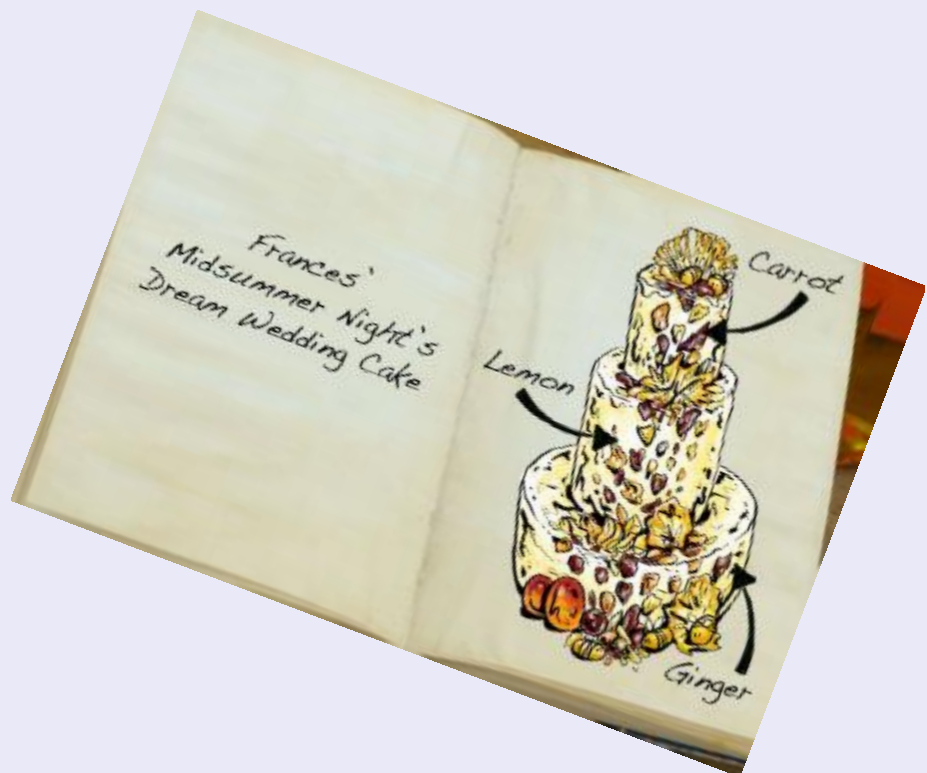 Frances'
Midsummer Night's
Dream Wedding Cake
Carrot
Lemon
Ginger